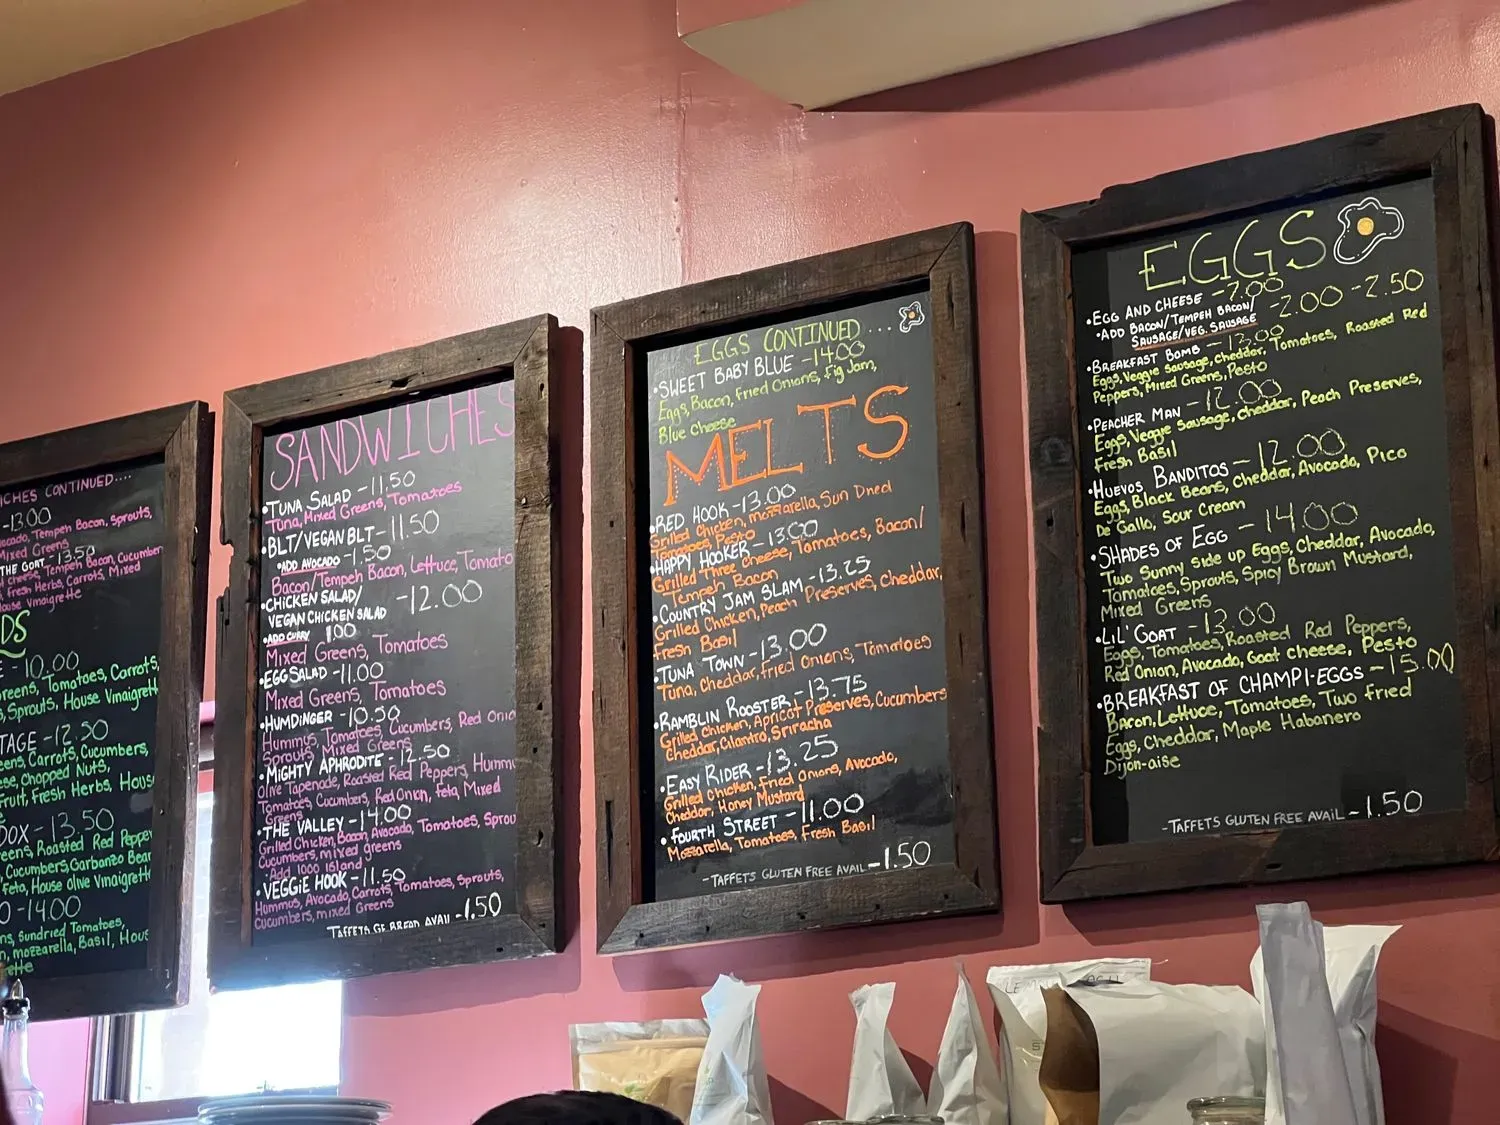 ICHES CONTINUED....
-13.00
ocado, Tempeh Bacon, Sprouts,
Mixed Greens
THE GOAT - 13.50
Cheese, Tempeh Bacon, Cucumber
s, Fresh Herbs, Carrots, Mixed
House Vinaigrette
DS
E - 10.00
reens, Tomatoes, Carrots,
s, Sprouts, House Vinaigrett
TAGE - 12.50
eens, Carrots, Cucumbers,
ese, Chopped Nuts,
Fruit, Fresh Herbs, Hous
DOX - 13.50
eens, Roasted Red Pepper
Cucumbers, Garbanzo Bean
feta, House olive Vinaigrett
O - 14.00
ns, sundried Tomatoes,
n, mozzarella, Basil, Hous
ette
SANDWICHES
•TUNA SALAD - 11.50
Tuna, Mixed Greens, Tomatoes
•BLT/VEGAN BLT - 11.50
•ADD AVOCADO - 1.50
Bacon/Tempeh Bacon, Lettuce, Tomato
•CHICKEN SALAD/
VEGAN CHICKEN SALAD - 12.00
•ADD CURRY 1.00
Mixed Greens, Tomatoes
•EGG SALAD - 11.00
Mixed Greens, Tomatoes
•HUMDINGER - 10.50
Hummus, Tomatoes, Cucumbers, Red Onio
Sprouts, Mixed Greens
•MIGHTY APHRODITE - 12.50
Olive Tapenade, Roasted Red Peppers, Hummu
Tomatoes, Cucumbers, Red Onion, feta, Mixed
Greens
•THE VALLEY - 14.00
Grilled Chicken, Bacon, Avocado, Tomatoes, Sprou
Cucumbers, mixed greens
- Add 1000 island
•VEGGIE HOOK - 11.50
Hummus, Avocado, Carrots, Tomatoes, Sprouts,
Cucumbers, mixed Greens
TAFFETS GF BREAD AVAIL - 1.50
EGGS CONTINUED ....
•SWEET BABY BLUE - 14.00
Eggs, Bacon, Fried Onions, Fig Jam,
Blue Cheese
MELTS
•RED HOOK - 13.00
Grilled Chicken, mozzarella, Sun Dried
Tomatoes, Pesto
•HAPPY HOOKER - 13.00
Grilled Three Cheese, Tomatoes, Bacon/
Tempeh Bacon
•COUNTRY JAM SLAM - 13.25
Grilled Chicken, Peach Preserves, Cheddar,
Fresh Basil
•TUNA TOWN - 13.00
Tuna, Cheddar, Fried Onions, Tomatoes
•RAMBLIN ROOSTER - 13.75
Grilled Chicken, Apricot Preserves, Cucumbers
Cheddar, Cilantro, Sriracha
•EASY RIDER - 13.25
Grilled Chicken, Fried Onions, Avocado,
Cheddar, Honey Mustard
•FOURTH STREET - 11.00
Mozzarella, Tomatoes, Fresh Basil
-TAFFETS GLUTEN FREE AVAIL - 1.50
EGGS
•EGG AND CHEESE - 7.00
•ADD BACON/TEMPEH BACON/
SAUSAGE/VEG. SAUSAGE - 2.00 - 2.50
•BREAKFAST BOMB - 13.00
Eggs, Veggie Sausage, Cheddar, Tomatoes, Roasted Red
Peppers, Mixed Greens, Pesto
•PEACHER MAN - 12.00
Eggs, Veggie Sausage, Cheddar, Peach Preserves,
Fresh Basil
•HUEVOS BANDITOS - 12.00
Eggs, Black Beans, Cheddar, Avocado, Pico
De Gallo, Sour Cream
•SHADES OF EGG - 14.00
Two Sunny side up Eggs, Cheddar, Avocado,
Tomatoes, Sprouts, Spicy Brown Mustard,
Mixed Greens
•LIL' GOAT - 13.00
Eggs, Tomatoes, Roasted Red Peppers,
Red Onion, Avocado, Goat cheese, Pesto
•BREAKFAST OF CHAMPI-EGGS - 15.00
Bacon, Lettuce, Tomatoes, Two fried
Eggs, Cheddar, Maple Habanero
Dijon-aise
-TAFFETS GLUTEN FREE AVAIL - 1.50